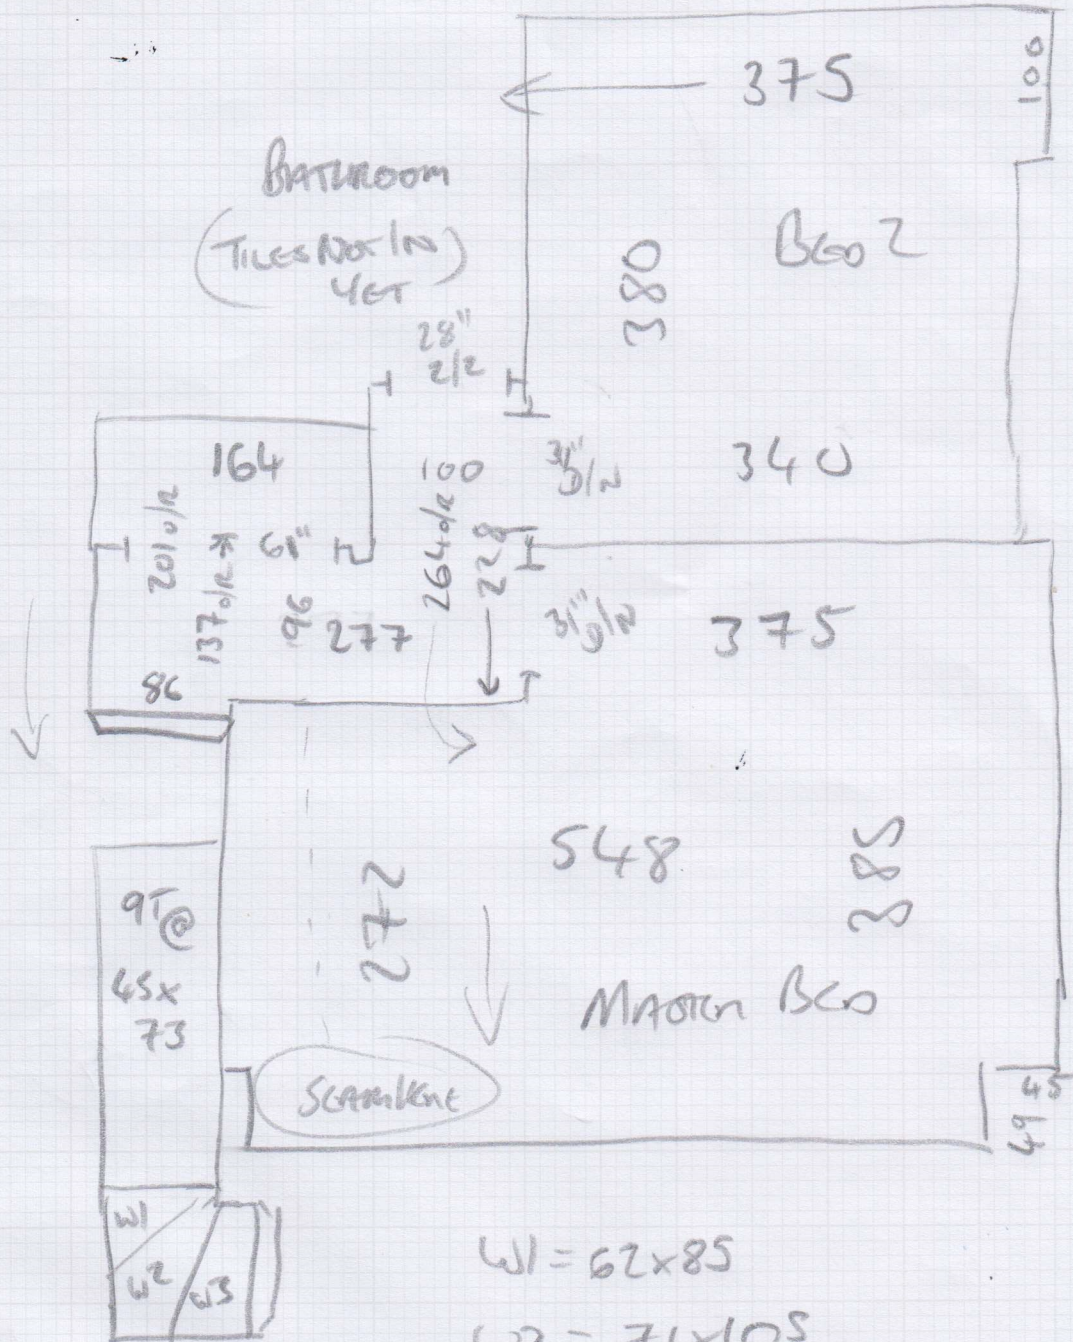 375
100
BATHROOM
(TILES NOT IN
YET)
BED 2
380
28"
2/2
164
100
31"
D/N
340
201 o/R
137 o/R
61"
264 o/R
228
96
277
31"
D/N
375
86
548
385
272
9T@
45x
73
MASTER BED
SEAM HERE
45
49
W1
W2
W3
W1 = 62x85